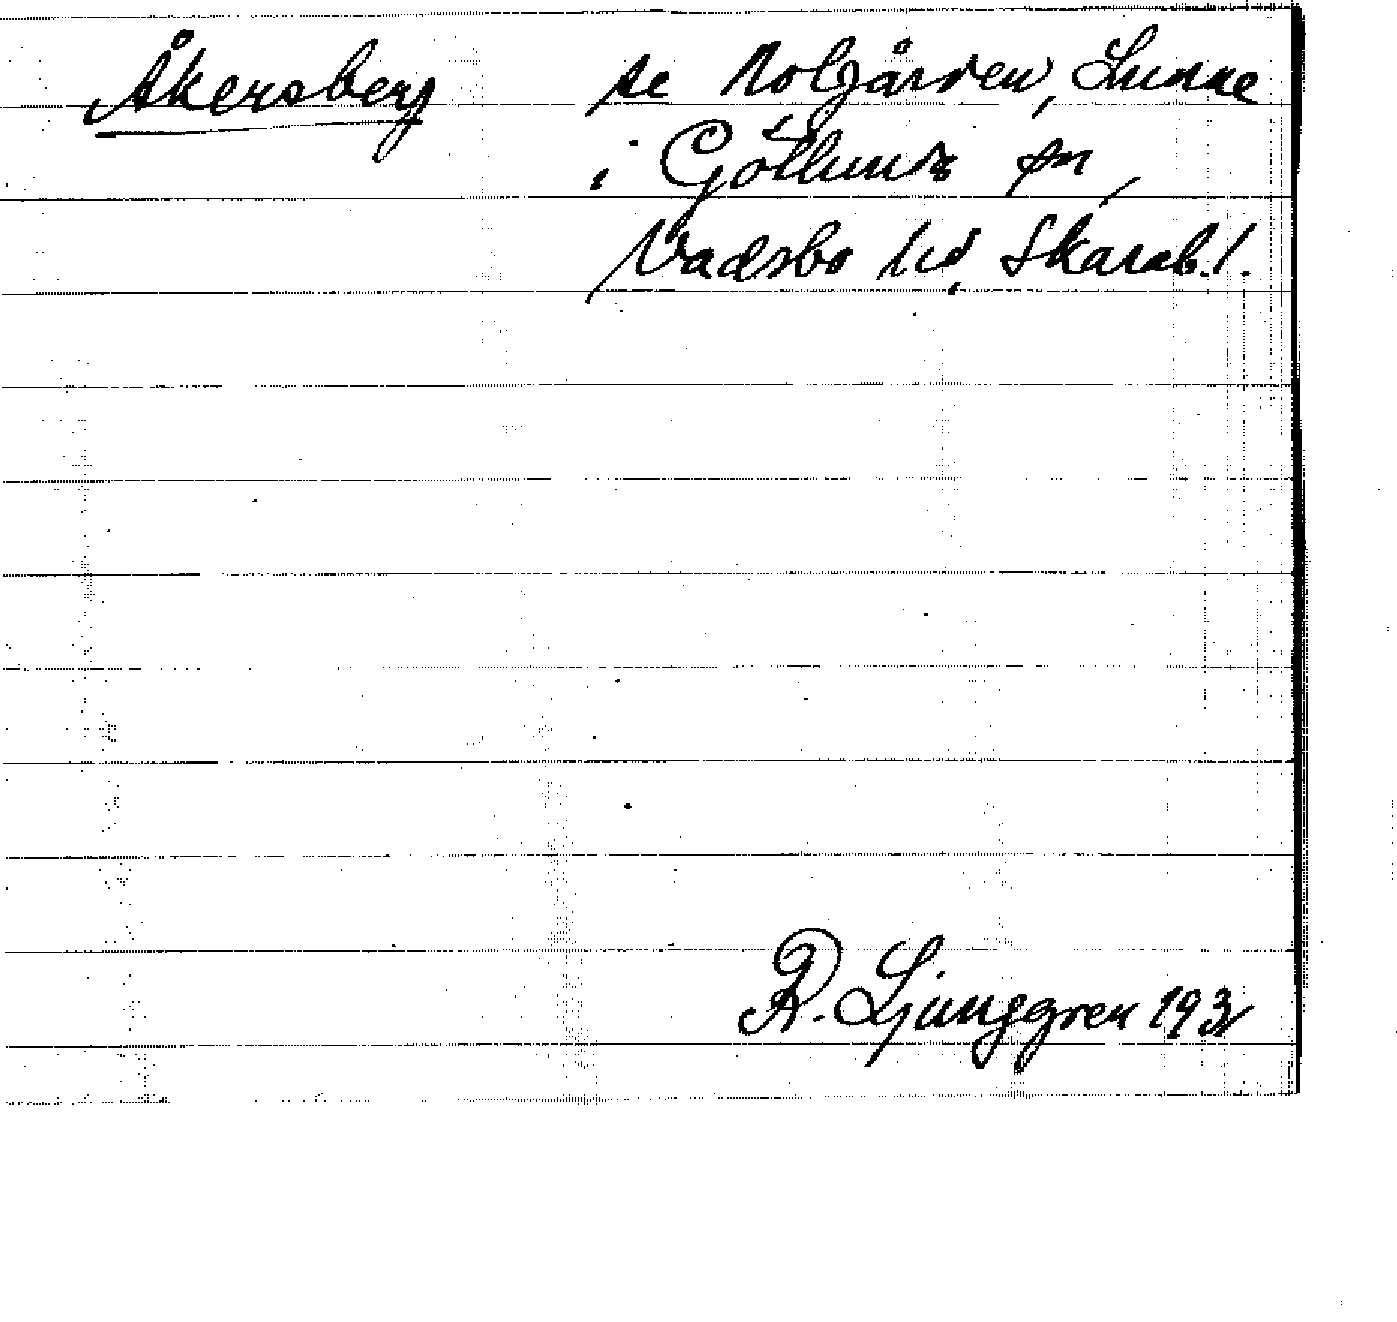 Åkersberg se Nolgården, Lunne
i Götlunda sn,
Vadsbo hd, Skarab.l.
R. Ljunggren 1932